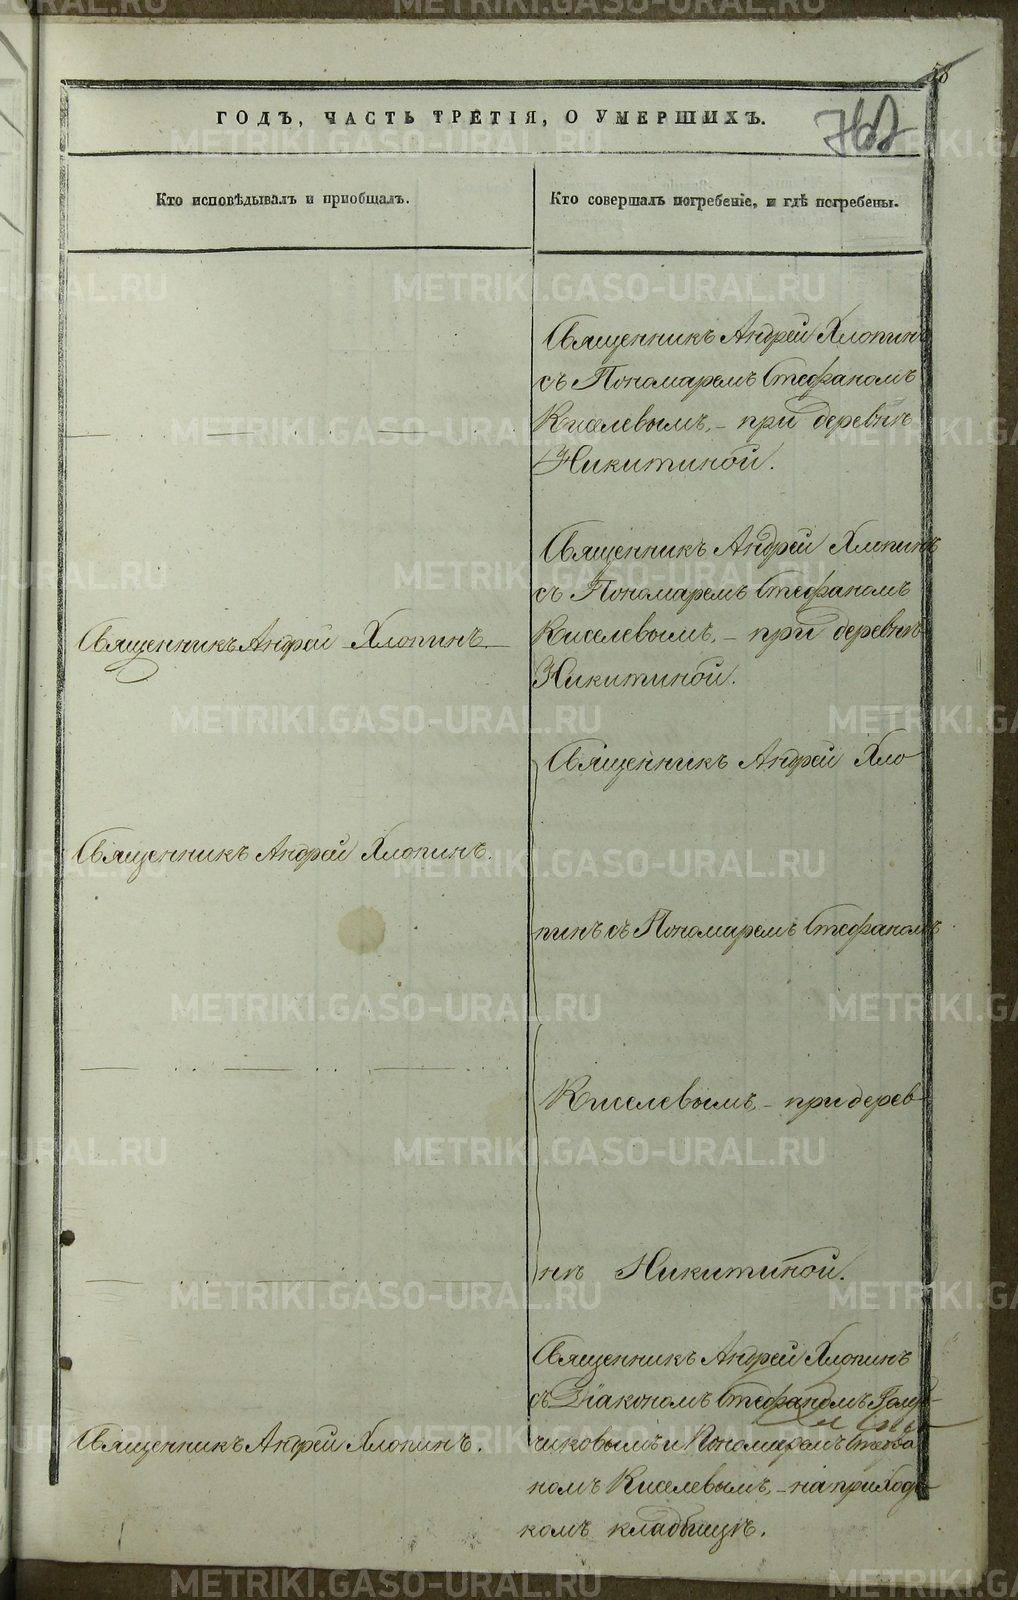 58
ГОДЪ, ЧАСТЬ ТРЕТІЯ, О УМЕРШИХЪ.
Кто исповѣдывалъ и пріобщалъ.
Кто совершалъ погребеніе, и гдѣ погребены.
Священникъ Андрей Хлопинъ
съ Пономаремъ Стефаномъ
Киселевымъ, – при деревнѣ
Никитиной.
Священникъ Андрей Хлопинъ.
Священникъ Андрей Хлопинъ
съ Пономаремъ Стефаномъ
Киселевымъ, – при деревнѣ
Никитиной.
Священникъ Андрей Хлопинъ.
Священникъ Андрей Хло
пинъ съ Пономаремъ Стефаномъ
Киселевымъ, – при дерев
нѣ Никитиной.
Священникъ Андрей Хлопинъ.
Священникъ Андрей Хлопинъ
съ Діакономъ Стефаномъ
чиковымъ и Пономаремъ Стефа
номъ Киселевымъ, – на приходс
комъ кладбищѣ.
METRIKI.GASO-URAL.RU